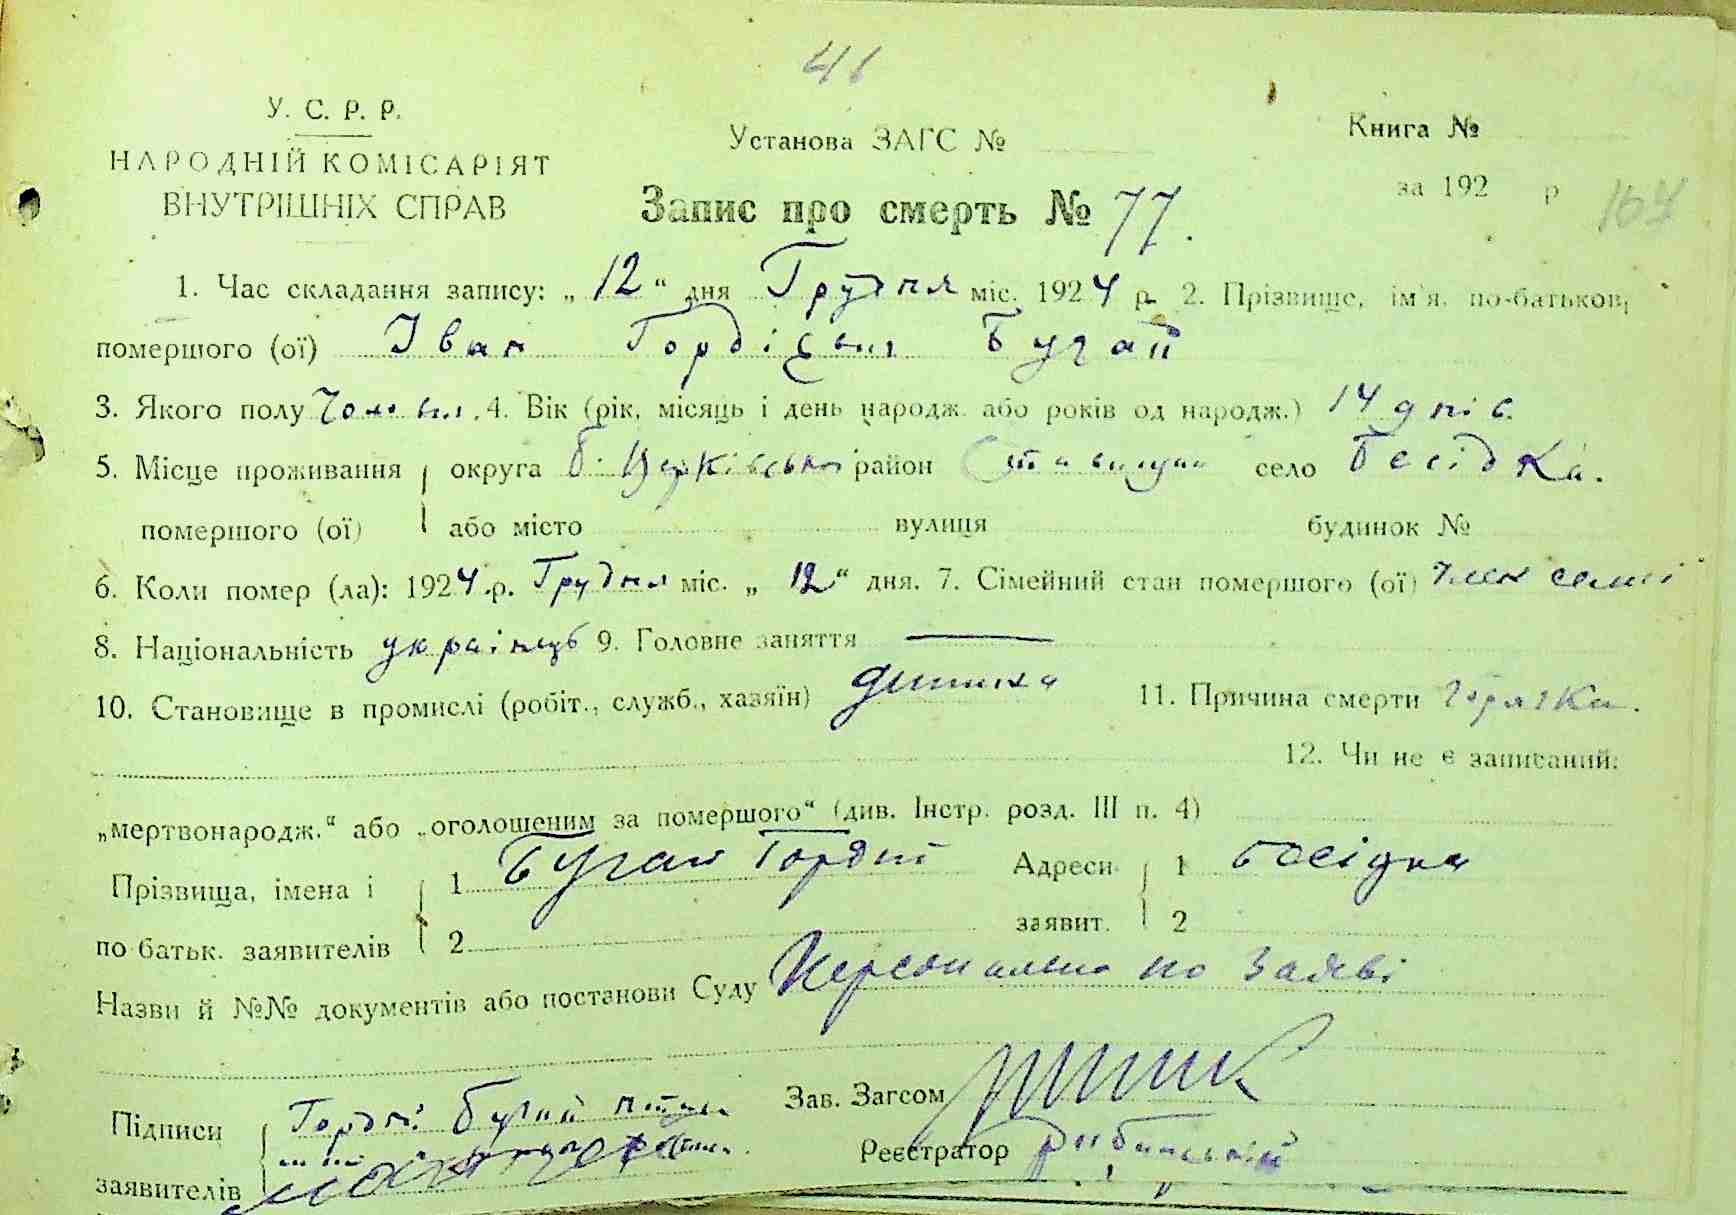 41
У. С. Р. Р.
НАРОДНІЙ КОМІСАРІЯТ
ВНУТРІШНІХ СПРАВ
Установа ЗАГС №
Книга №
за 192 р
164
Запис про смерть № 77.
1. Час складання запису: „ 12 “ дня Грудня міс. 1924 р. 2. Прізвище, ім'я, по-батькові
померлого (ої) Іван Гордієвич Бугай
3. Якого полу чолов. 4. Вік (рік, місяць і день народж. або років од народж.) 14 днів.
5. Місце проживання округа Б. Церківська район Ставищан село Бесідка.
помершого (ої) або місто вулиця будинок №
6. Коли помер (ла): 1924 р. Грудня міс. „ 12 “ дня. 7. Сімейний стан помершого (ої) член семії
8. Національність українець 9. Головне заняття —
10. Становище в промислі (робіт., служб., хазяїн) дитина 11. Причина смерти горячка.
12. Чи не є записаний:
„мертвонародж.“ або „оголошеним за помершого“ (див. Інстр. розд. III п. 4)
Прізвища, імена і 1 Бугай Гордій Адреси 1 Бесідка
по батьк. заявителів 2 заявит. 2
Назви й №№ документів або постанови Суду Персонально по заяві
Підписи Гордій Бугай Зав. Загсом
заявителів Реєстратор